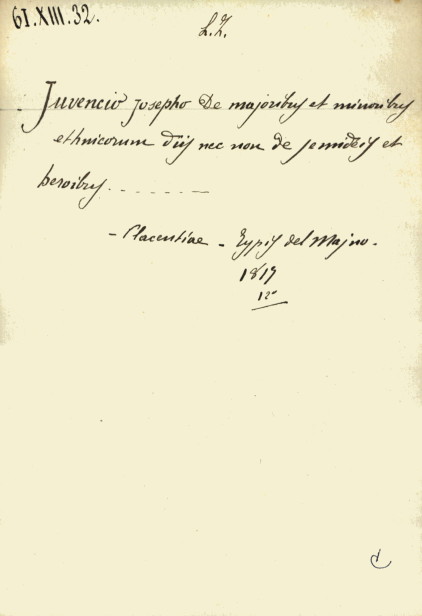 61.XIII.32.
L.Z.
Juvencio Josepho De majoribus et minoribus
ethnicorum diis nec non de semideis et
heroibus . . . . . . —
– Placentiae – Typis del Majno.
1819
12°